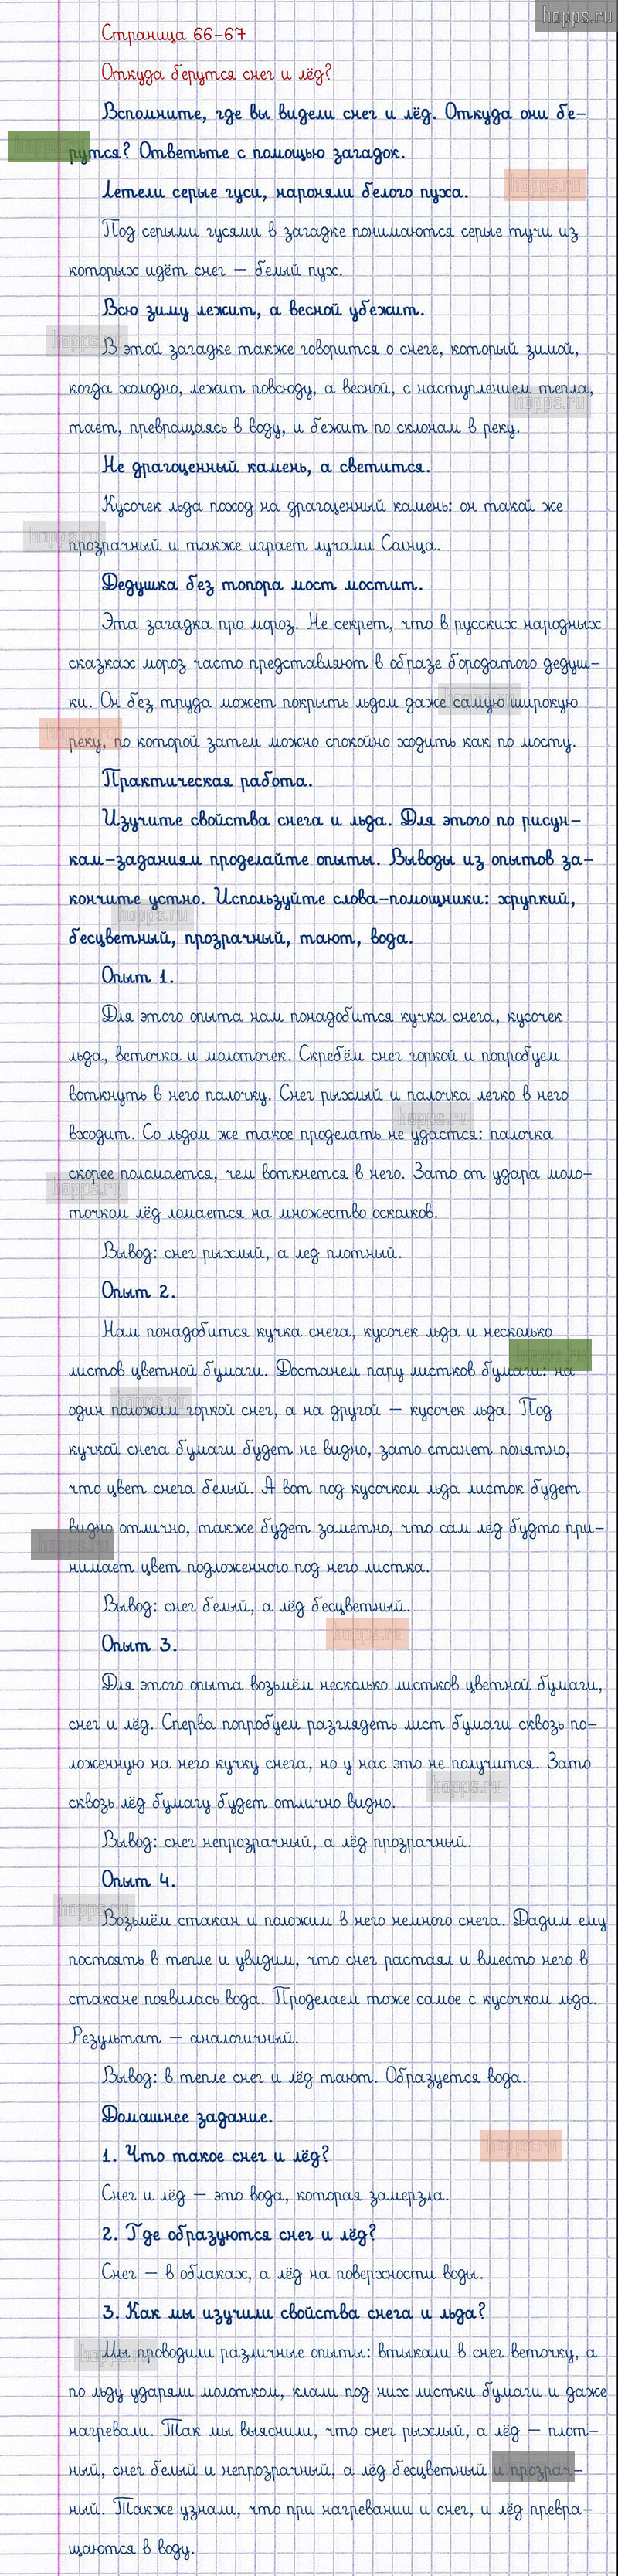 hopps.ru
Страница 66-67
Откуда берутся снег и лёд?
Вспомните, где вы видели снег и лёд. Откуда они бе-
рутся? Ответьте с помощью загадок.
Летели серые гуси, нароняли белого пуха.
Под серыми гусями в загадке понимаются серые тучи из
которых идёт снег – белый пух.
Всю зиму лежит, а весной убежит.
В этой загадке также говорится о снеге, который зимой,
когда холодно, лежит повсюду, а весной, с наступлением тепла,
тает, превращаясь в воду, и бежит по склонам в реку.
Не драгоценный камень, а светится.
Кусочек льда похож на драгоценный камень: он такой же
прозрачный и также играет лучами Солнца.
Дедушка без топора мост мостит.
Эта загадка про мороз. Не секрет, что в русских народных
сказках мороз часто представляют в образе бородатого дедуш-
ки. Он без труда может покрыть льдом даже самую широкую
реку, по которой затем можно спокойно ходить как по мосту.
Практическая работа.
Изучите свойства снега и льда. Для этого по рисун-
кам-заданиям проделайте опыты. Выводы из опытов за-
кончите устно. Используйте слова-помощники: хрупкий,
бесцветный, прозрачный, тают, вода.
Опыт 1.
Для этого опыта нам понадобится кучка снега, кусочек
льда, веточка и молоточек. Скребём снег горкой и попробуем
воткнуть в него палочку. Снег рыхлый и палочка легко в него
входит. Со льдом же такое проделать не удастся: палочка
скорее поломается, чем воткнется в него. Зато от удара моло-
точком лёд ломается на множество осколков.
Вывод: снег рыхлый, а лед плотный.
Опыт 2.
Нам понадобится кучка снега, кусочек льда и несколько
листов цветной бумаги. Достанем пару листков бумаги: на
один положим горкой снег, а на другой – кусочек льда. Под
кучкой снега бумаги будет не видно, зато станет понятно,
что цвет снега белый. А вот под кусочком льда листок будет
видно отлично, также будет заметно, что сам лёд будто при-
нимает цвет подложенного под него листка.
Вывод: снег белый, а лёд бесцветный.
Опыт 3.
Для этого опыта возьмём несколько листков цветной бумаги,
снег и лёд. Сперва попробуем разглядеть лист бумаги сквозь по-
ложенную на него кучку снега, но у нас это не получится. Зато
сквозь лёд бумагу будет отлично видно.
Вывод: снег непрозрачный, а лёд прозрачный.
Опыт 4.
Возьмём стакан и положим в него немного снега. Дадим ему
постоять в тепле и увидим, что снег растаял и вместо него в
стакане появилась вода. Проделаем тоже самое с кусочком льда.
Результат – аналогичный.
Вывод: в тепле снег и лёд тают. Образуется вода.
Домашнее задание.
1. Что такое снег и лёд?
Снег и лёд – это вода, которая замерзла.
2. Где образуются снег и лёд?
Снег – в облаках, а лёд на поверхности воды.
3. Как мы изучили свойства снега и льда?
Мы проводили различные опыты: втыкали в снег веточку, а
по льду ударяли молотком, клали под них листки бумаги и даже
нагревали. Так мы выяснили, что снег рыхлый, а лёд – плот-
ный, снег белый и непрозрачный, а лёд бесцветный и прозрач-
ный. Также узнали, что при нагревании и снег, и лёд превра-
щаются в воду.